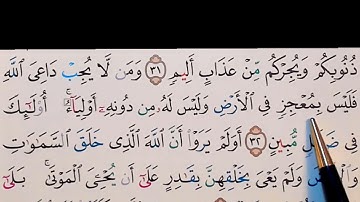 ذُنُوبِكُمْ وَيُجِرْكُم مِّنْ عَذَابٍ أَلِيمٍ ٣١ وَمَن لَّا يُجِبْ دَاعِيَ ٱللَّهِ
فَلَيْسَ بِمُعْجِزٍ فِي ٱلْأَرْضِ وَلَيْسَ لَهُۥ مِن دُونِهِۦٓ أَوْلِيَآءُ ۚ أُو۟لَٰٓئِكَ
فِي ضَلَٰلٍ مُّبِينٍ ٣٢ أَوَلَمْ يَرَوْا۟ أَنَّ ٱللَّهَ ٱلَّذِي خَلَقَ ٱلسَّمَٰوَٰتِ
وَٱلْأَرْضَ وَلَمْ يَعْيَ بِخَلْقِهِنَّ بِقَٰدِرٍ عَلَىٰٓ أَن يُحْـِۧيَ ٱلْمَوْتَىٰ ۚ بَلَىٰٓ